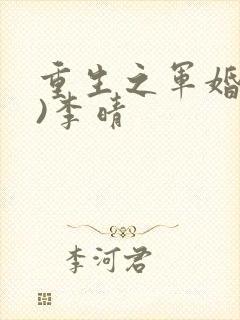 重生之军婚
)李晴
李河君